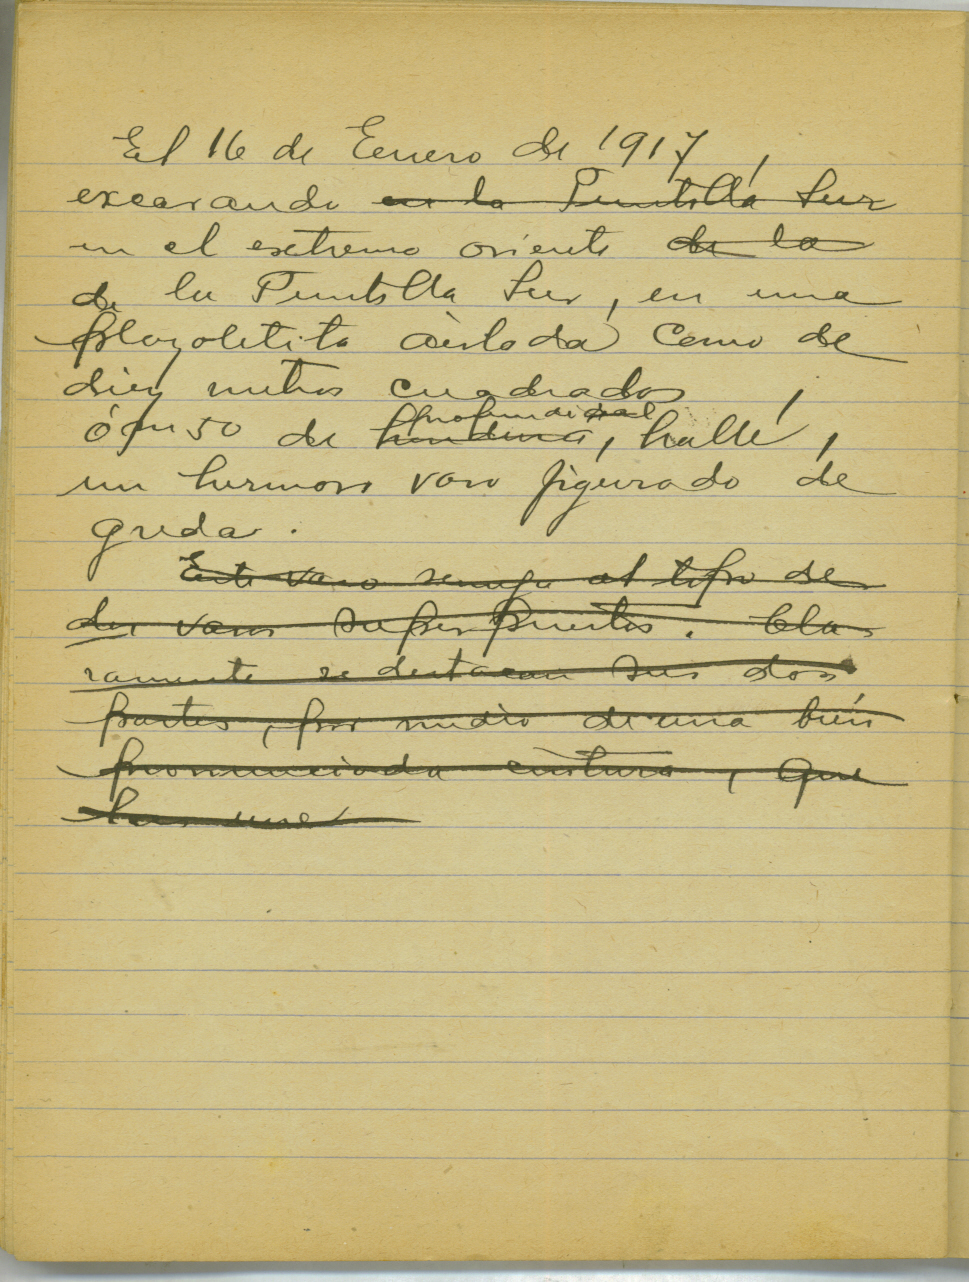 El 16 de Enero de 1917,
excavando en la Puntilla Sur
en el extremo oriente de la
de la Puntilla Sur, en una
plazoletita aislada como de
diez metros cuadrados,
profundidad
ó m 50 de hondura, hallé,
un hermoso vaso figurado de
greda.
Este vaso semeja al tipo de
dos vasos superpuestos. Cla-
ramente se destacan sus dos
partes, por medio de una bien
pronunciada cintura, que
las une